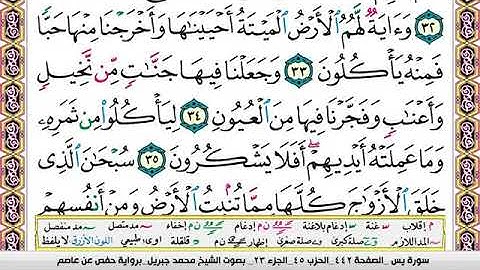 ٣٢ وَءَايَةٌ لَّهُمُ ٱلْأَرْضُ ٱلْمَيْتَةُ أَحْيَيْنَٰهَا وَأَخْرَجْنَا مِنْهَا حَبًّا
فَمِنْهُ يَأْكُلُونَ ٣٣ وَجَعَلْنَا فِيهَا جَنَّٰتٍ مِّن نَّخِيلٍ
وَأَعْنَٰبٍ وَفَجَّرْنَا فِيهَا مِنَ ٱلْعُيُونِ ٣٤ لِيَأْكُلُوا۟ مِن ثَمَرِهِۦ
وَمَا عَمِلَتْهُ أَيْدِيهِمْ ۖ أَفَلَا يَشْكُرُونَ ٣٥ سُبْحَٰنَ ٱلَّذِى
خَلَقَ ٱلْأَزْوَٰجَ كُلَّهَا مِمَّا تُنۢبِتُ ٱلْأَرْضُ وَمِنْ أَنفُسِهِمْ
م إقلاب غنة إدغام بلاغنة إدغام ن م إخفاء مد متصل مد منفصل
المد اللازم صلة كبرى صلة صغرى إظهار ن م قلقلة اوى طبيعي اللون الأزرق لا يلفظ
سورة يس _الصفحة ٤٤٢ _الحزب ٤٥ _الجزء ٢٣ _ بصوت الشيخ محمد جبريل _برواية حفص عن عاصم